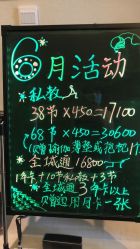 6月活动
*私教
38节×450=17100
68节×450=30600
*全城通16800
1年卡+10节私教+3节
*全城通3年卡以上
赠送用月卡一张